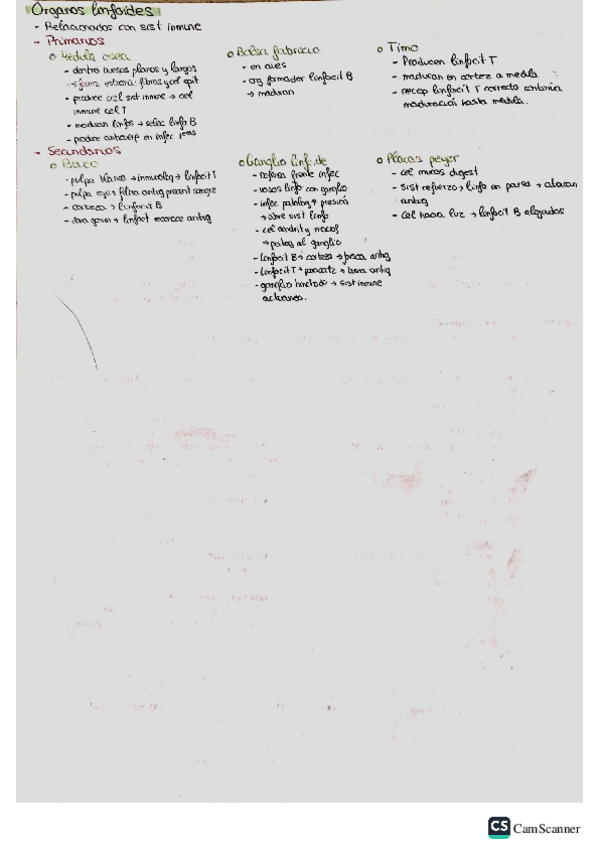 Órganos linfoides
- Relacionados con sist inmune
- Primarios
o Médula ósea
- dentro huesos planos y largos
- produce cel sist inmune → cel
inmune cel T
- maduran linfos → selec linfo B
- produce anticuerp en infec
o Bolsa fabricio
- en aves
- org formador linfocit B
→ maduran
o Timo
- Producen linfocit T
- maduran en corteza a médula
- recep linfocit T correcto continúa
maduración hasta médula.
- Secundarios
o Bazo
- pulpa blanca → inmunolog → linfocit T
- pulpa roja → filtra antíg sangre
- corteza → linfocit B
- linfocit reconoce antíg
o Ganglio linf.de
- Defensa frente infec
- vasos linfo con ganglio
- infec patólog ↑ presión
→ abre sist linfo
- cel dendrit y macrof
→ patóg al ganglio
- Linfocit B → corteza → antíg
- Linfocit T → paracort → antíg
- ganglio hinchado → sist inmune
actuando.
o Placas peyer
- cel mucos digest
- Sist refuerzo → linfo en pared → atacan
antíg
- Cel hacia luz → linfocit B alojados
CS CamScanner